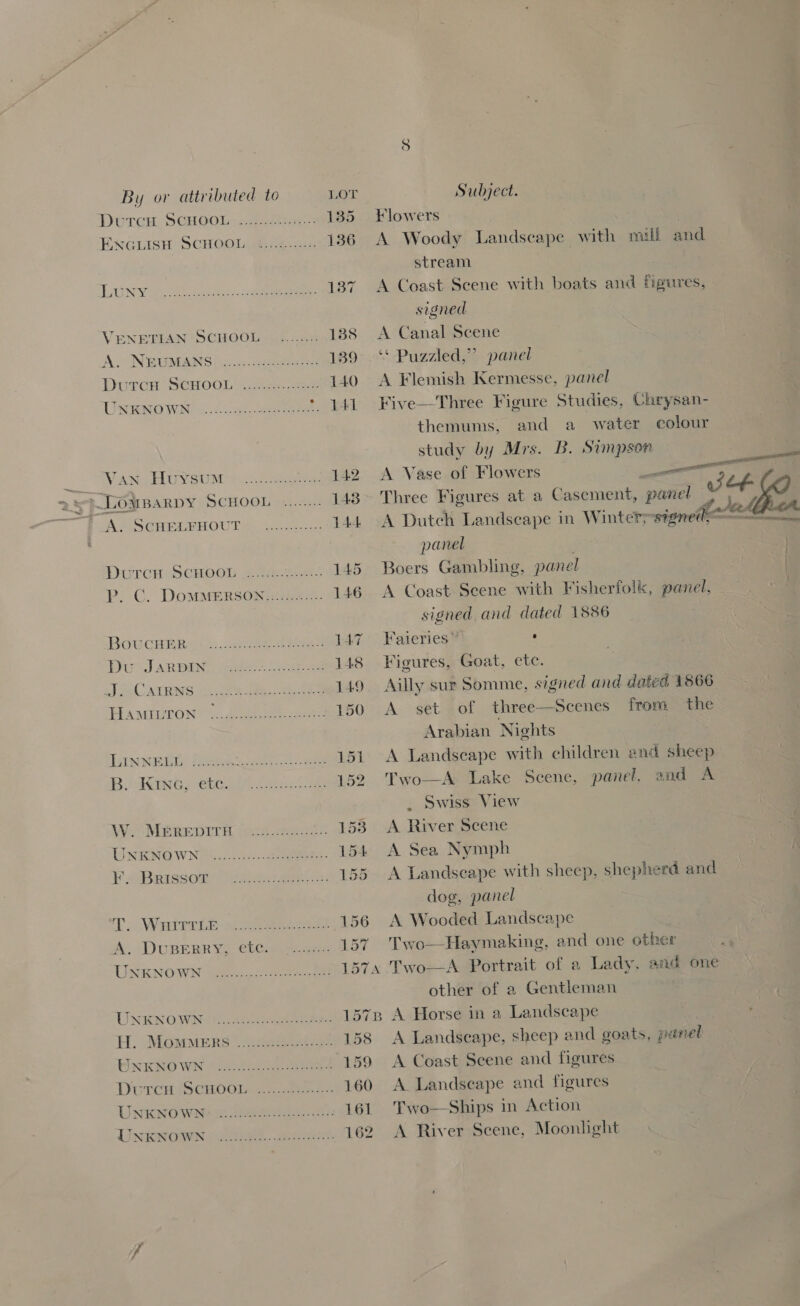 8
By or attributed to LOT Subject.
DUTCH SCHOOL ............ 135 Flowers
ENGLISH SCHOOL ............ 136 A Woody Landscape with mill and
stream
LUNY ............ 137 A Coast Scene with boats and figures,
signed
VENETIAN SCHOOL ........ 138 A Canal Scene
A. NEUMANS ............ 139 “ Puzzled,” panel
DUTCH SCHOOL ............ 140 A Flemish Kermesse, panel
UNKNOWN ............ 141 Five—Three Figure Studies, Chrysan-
themums, and a water colour
study by Mrs. B. Simpson
VAN HUYSUM ............ 142 A Vase of Flowers
LOMBARDY SCHOOL ........ 143 Three Figures at a Casement, panel
A. SCHELFHOUT ............ 144 A Dutch Landscape in Winter, signed,
panel
DUTCH SCHOOL ............ 145 Boers Gambling, panel
P. C. DOMMERSON............ 146 A Coast Scene with Fisherfolk, panel,
signed and dated 1886
BOUCHER ............ 147 Faieries
DU JARDIN ............ 148 Figures, Goat, etc.
J. CAIRNS ............ 149 Ailly sur Somme, signed and dated 1866
HAMILTON ............ 150 A set of three—Scenes from the
Arabian Nights
LINNELL ............ 151 A Landscape with children and sheep
B. KING, etc. ............ 152 Two—A Lake Scene, panel, and A
Swiss View
W. MEREDITH ............ 153 A River Scene
UNKNOWN ............ 154 A Sea Nymph
F. BRISSOT ............ 155 A Landscape with sheep, shepherd and
dog, panel
T. WHITTLE ............ 156 A Wooded Landscape
A. DUBERRY, etc. ........ 157 Two—Haymaking, and one other
UNKNOWN ............ 157A Two—A Portrait of a Lady, and one
other of a Gentleman
UNKNOWN ............ 157B A Horse in a Landscape
H. MOMMERS ............ 158 A Landscape, sheep and goats, panel
UNKNOWN ............ 159 A Coast Scene and figures
DUTCH SCHOOL ............ 160 A Landscape and figures
UNKNOWN ............ 161 Two—Ships in Action
UNKNOWN ............ 162 A River Scene, Moonlight